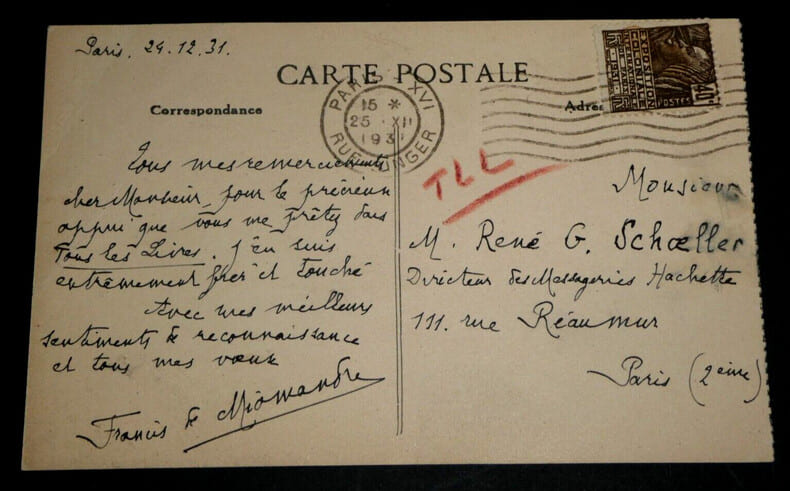 Paris. 24.12.31.
CARTE POSTALE
Correspondance
Adres
PARIS XVI
15 *
25 XII
1931
RUE SINGER
EXPOSITION
COLONIALE
INTERNATIONALE
PARIS 1931
POSTES
40c
TLL
Tous mes remerciements
cher Monsieur, pour le précieux
appui que vous me prêtez dans
Tous les Livres. J'en suis
extrêmement fier et touché
Avec mes meilleurs
sentiments de reconnaissance
et tous mes vœux
Francis de Miomandre
Monsieur
M. René G. Schœller
Directeur des Messageries Hachette
111. rue Réaumur
Paris (2ème)